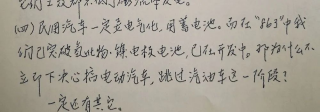 (四)民用汽车一定是电气化,用蓄电池。而在“863”中我
们已突破氢化物·镍电极电池,已在开发中。那为什么不
立即下决心搞电动汽车,跳过汽油车这一阶段?
一定还有其它。